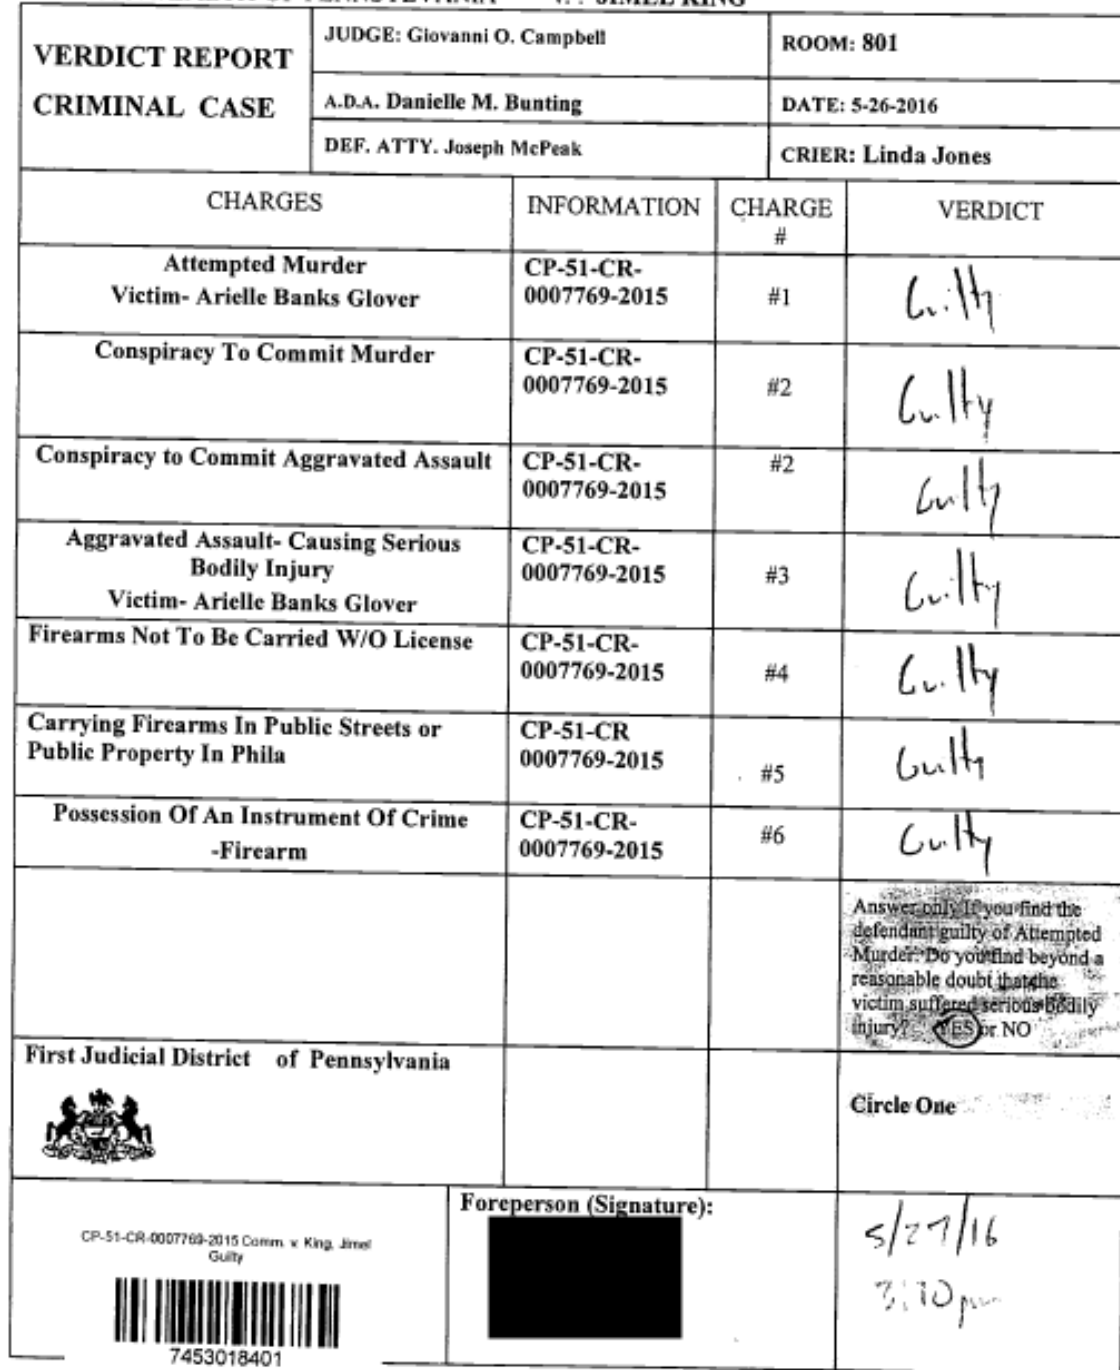 PENNSYLVANIA V. JIMEL KING
VERDICT REPORT
CRIMINAL CASE
JUDGE: Giovanni O. Campbell
ROOM: 801
A.D.A. Danielle M. Bunting
DATE: 5-26-2016
DEF. ATTY. Joseph McPeak
CRIER: Linda Jones
CHARGES
INFORMATION
CHARGE
#
VERDICT
Attempted Murder
Victim- Arielle Banks Glover
CP-51-CR-
0007769-2015
#1
Guilty
Conspiracy To Commit Murder
CP-51-CR-
0007769-2015
#2
Guilty
Conspiracy to Commit Aggravated Assault
CP-51-CR-
0007769-2015
#2
Guilty
Aggravated Assault- Causing Serious
Bodily Injury
Victim- Arielle Banks Glover
CP-51-CR-
0007769-2015
#3
Guilty
Firearms Not To Be Carried W/O License
CP-51-CR-
0007769-2015
#4
Guilty
Carrying Firearms In Public Streets or
Public Property In Phila
CP-51-CR
0007769-2015
#5
Guilty
Possession Of An Instrument Of Crime
-Firearm
CP-51-CR-
0007769-2015
#6
Guilty
Answer only If you find the
defendant guilty of Attempted
Murder: Do you find beyond a
reasonable doubt that the
victim suffered serious bodily
injury? YES or NO
First Judicial District of Pennsylvania
Circle One
CP-51-CR-0007769-2015 Comm. v. King, Jimel
Guilty
7453018401
Foreperson (Signature):
5/27/16
pm